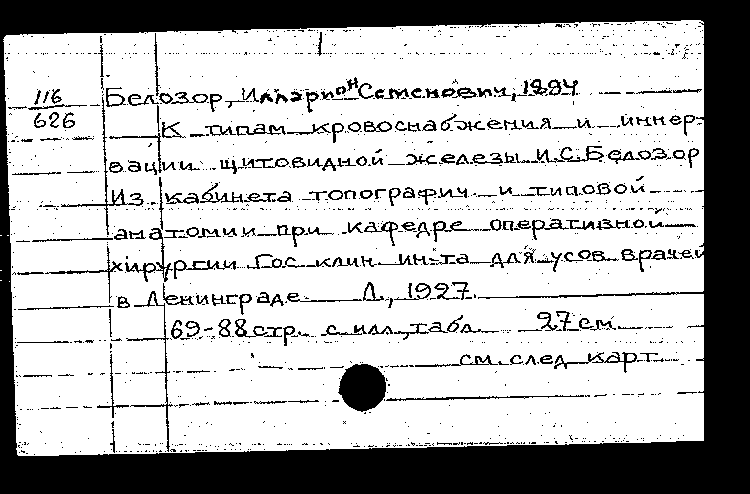 116
626
Белозор, Илларион Семенович, 1894
К типам кровоснабжения и иннер-
вации щитовидной железы И.С. Белозор
Из кабинета топографич. и типовой
анатомии при кафедре оперативной
хирургии Гос клин. ин-та для усов. врачей
в Ленинграде. Л., 1927.
69-88 стр. с илл., табл. 27 см.
см. след карт.